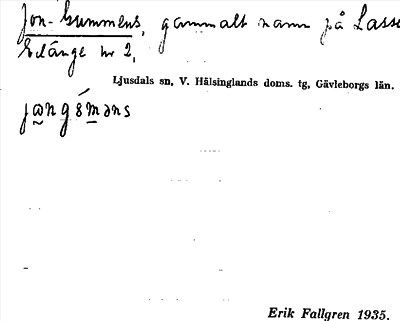 Jon-Gummens, gammalt namn på Lasse
Edänge nr 2.
Ljusdals sn, V. Hälsinglands doms. tg, Gävleborgs län.
Erik Fallgren 1935.